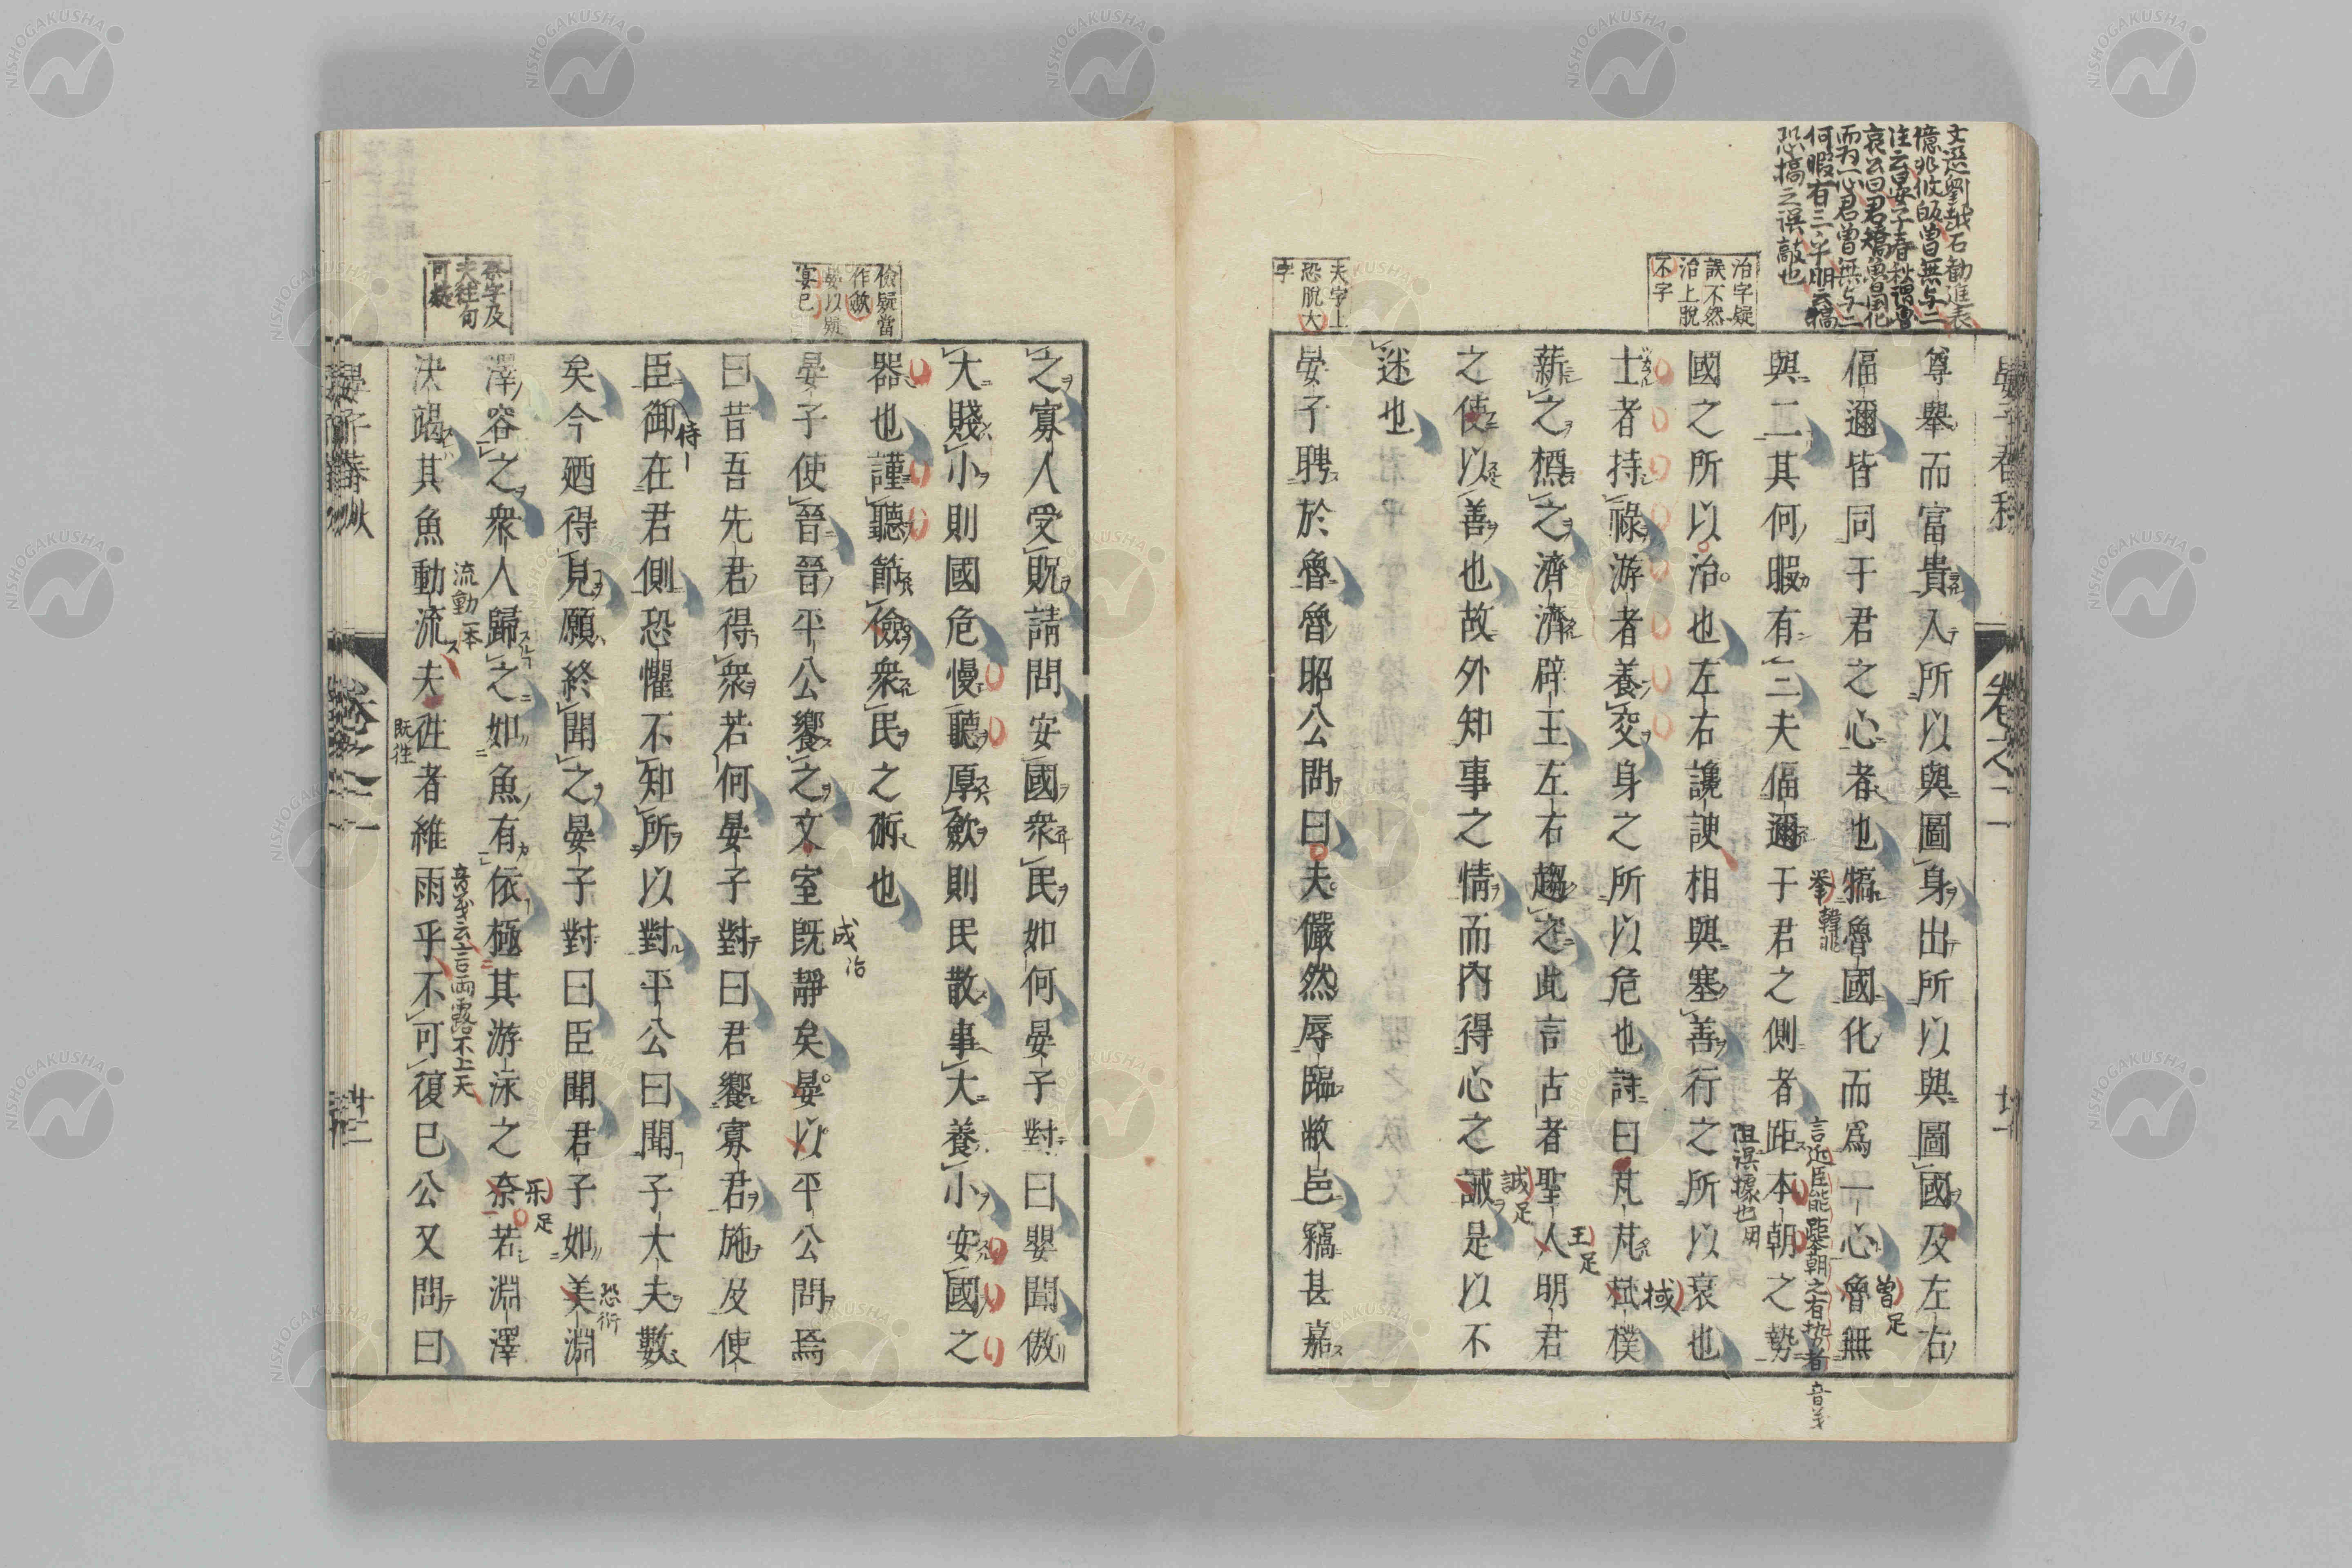 文選劉越石勸進表
億兆攸皈曽無与二
注云晏子春秋謂魯
哀公曰君矯魯国化
而为一心君曽無与二
何暇有三
恐搞之誤敲也
治字疑
誤不然
治上脫
不字
夫字上
恐脫大
字
晏子春秋
卷之二
尊舉而富貴入所以與圖身出所以與圖國及左右
偪邇皆同于君之心者也犒魯國化而爲一心魯無
曽足
與二其何暇有三夫偪邇于君之側者距本朝之勢
擧韓非
言近臣能距朝之有势者音義
國之所以治也左右讒諛相與塞善行之所以衰也
阻誤據也
士者持祿游者養交身之所以危也詩曰芃芃棫樸
棫
薪之槱之濟濟辟王左右趨之此言古者聖人明君
王足
之使以善也故外知事之情而內得心之誠是以不
誠足
迷也
晏子聘於魯魯昭公問曰夫儼然辱臨敝邑竊甚嘉
儉疑當
作斂
晏以疑
宴已
奈字及
夫徃旬
可疑
之寡人受貺請問安國衆民如何晏子對曰嬰聞傲
大賤小則國危慢聽厚斂則民散事大養小安國之
器也謹聽節儉衆民之術也
晏子使晉晉平公饗之文室既靜矣晏以平公問焉
成治
曰昔吾先君得衆若何晏子對曰君饗寡君施及使
臣御在君側恐懼不知所以對平公曰聞子大夫數
侍
矣今廼得見願終聞之晏子對曰臣聞君子如美淵
恐衍
澤容之衆人歸之如魚有依極其游泳之奈若淵澤
乐足
決竭其魚動流夫徃者維雨乎不可復已公又問曰
流動一本
音義云言雨露不上天
既徃
晏子春秋
卷之二